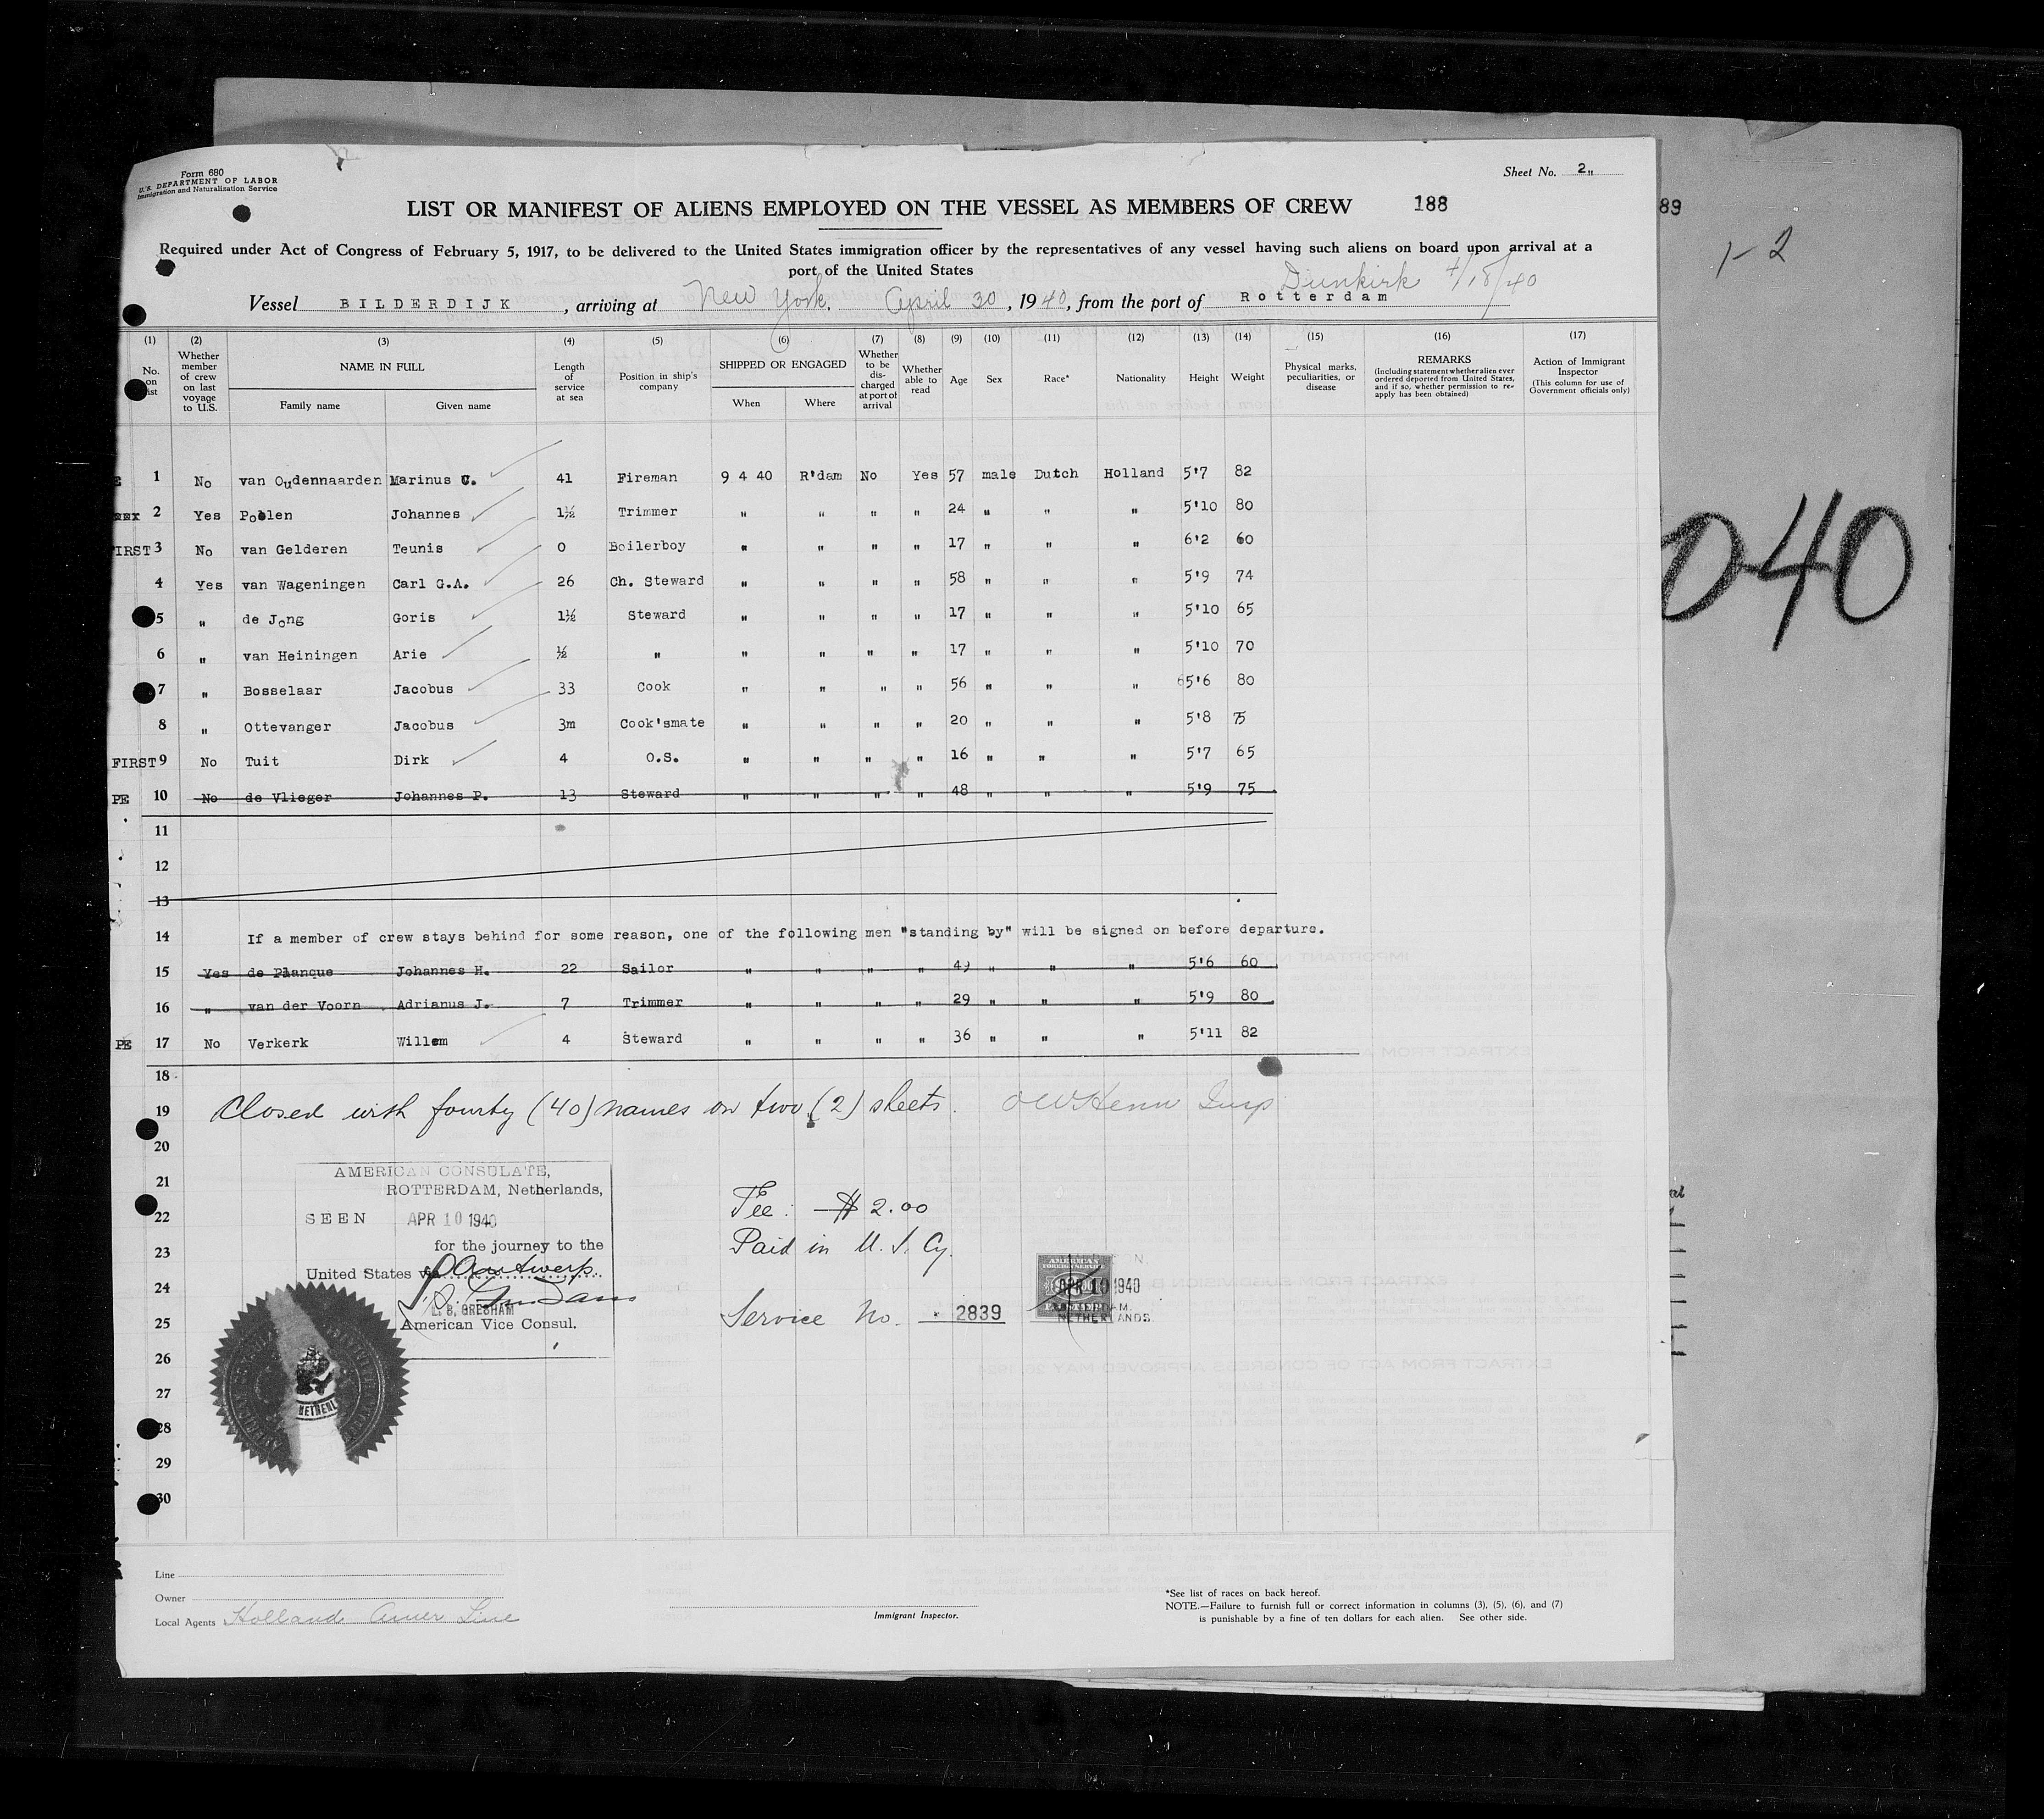 Form 680
U.S. DEPARTMENT OF LABOR
Immigration and Naturalization Service
Sheet No. 2"
LIST OR MANIFEST OF ALIENS EMPLOYED ON THE VESSEL AS MEMBERS OF CREW 188
89
1-2
Required under Act of Congress of February 5, 1917, to be delivered to the United States immigration officer by the representatives of any vessel having such aliens on board upon arrival at a
port of the United States
Dunkirk 4/18/40
Vessel BILDERDIJK, arriving at New York, April 30, 1940, from the port of Rotterdam
(1) (2) (3) (4) (5) (6) (7) (8) (9) (10) (11) (12) (13) (14) (15) (16) (17)
No. on list
Whether member of crew on last voyage to U.S.
NAME IN FULL
Family name Given name
Length of service at sea
Position in ship's company
SHIPPED OR ENGAGED
When Where
Whether to be discharged at port of arrival
Whether able to read
Age Sex Race* Nationality Height Weight
Physical marks, peculiarities, or disease
REMARKS
(Including statement whether alien ever ordered deported from United States, and if so, whether permission to reapply has been obtained)
Action of Immigrant Inspector
(This column for use of Government officials only)
E 1 No van Oudennaarden Marinus C. 41 Fireman 9 4 40 R'dam No Yes 57 male Dutch Holland 5'7 82
2 Yes Poolen Johannes 1½ Trimmer " " " " 24 " " " 5'10 80
FIRST 3 No van Gelderen Teunis 0 Boilerboy " " " " 17 " " " 6'2 60
4 Yes van Wageningen Carl G.A. 26 Ch. Steward " " " " 58 " " " 5'9 74
5 " de Jong Goris 1½ Steward " " " " 17 " " " 5'10 65
6 " van Heiningen Arie ½ " " " " " 17 " " " 5'10 70
7 " Bosselaar Jacobus 33 Cook " " " " 56 " " " 5'6 80
8 " Ottevanger Jacobus 3m Cook'smate " " " " 20 " " " 5'8 75
FIRST 9 No Tuit Dirk 4 O.S. " " " " 16 " " " 5'7 65
PE 10 No de Vlieger Johannes P. 13 Steward " " " " 48 " " " 5'9 75
11
12
13
14 If a member of crew stays behind for some reason, one of the following men "standing by" will be signed on before departure.
15 Yes de Planque Johannes H. 22 Sailor " " " " 49 " " " 5'6 60
16 " van der Voorn Adrianus J. 7 Trimmer " " " " 29 " " " 5'9 80
PE 17 No Verkerk Willem 4 Steward " " " " 36 " " " 5'11 82
18
19 Closed with fourty (40) names on two (2) sheets. Insp
20
21
22
23
24
25
26
27
28
29
30
AMERICAN CONSULATE,
ROTTERDAM, Netherlands,
SEEN APR 10 1940
for the journey to the
United States via Antwerp
L. B. GRESHAM
American Vice Consul.
Fee: $2.00
Paid in U.S. Cy.
Service No. 2839
AMERICAN
FOREIGN SERVICE
APR 10 1940
NETHERLANDS.
040
Line
Owner
Local Agents Holland Amer Line
Immigrant Inspector.
*See list of races on back hereof.
NOTE.—Failure to furnish full or correct information in columns (3), (5), (6), and (7)
is punishable by a fine of ten dollars for each alien. See other side.